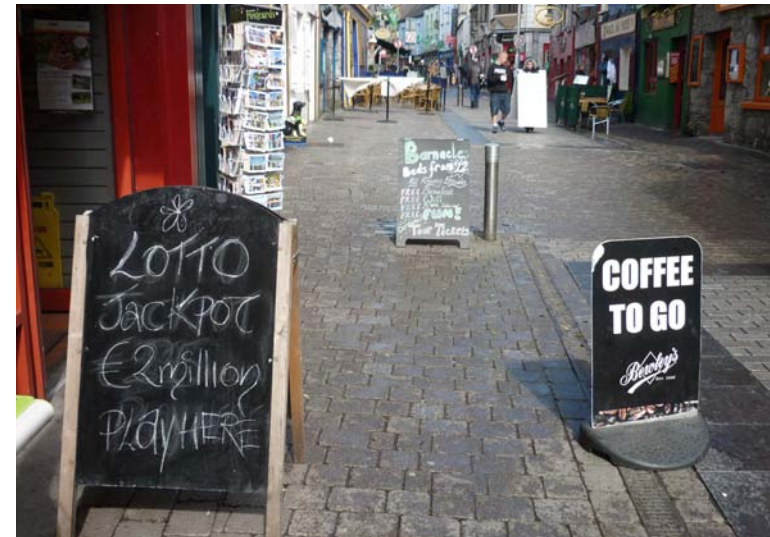 LOTTO
JACKPOT
€2million
PLAY HERE
Postcards
Barnacle
Beds from 12
FREE
FREE
FREE
FUN!!
Tour Tickets
COFFEE
TO GO
Bewley's